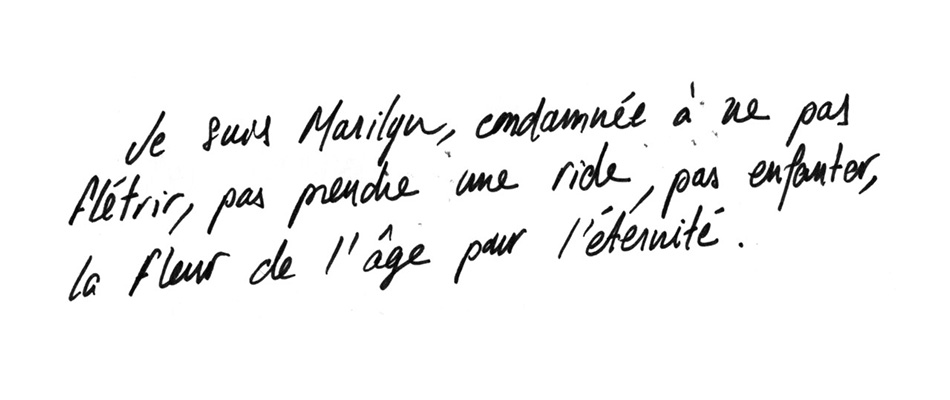 Je suis Marilyn, condamnée à ne pas
flétrir, pas prendre une ride, pas enfanter,
la fleur de l'âge pour l'éternité.